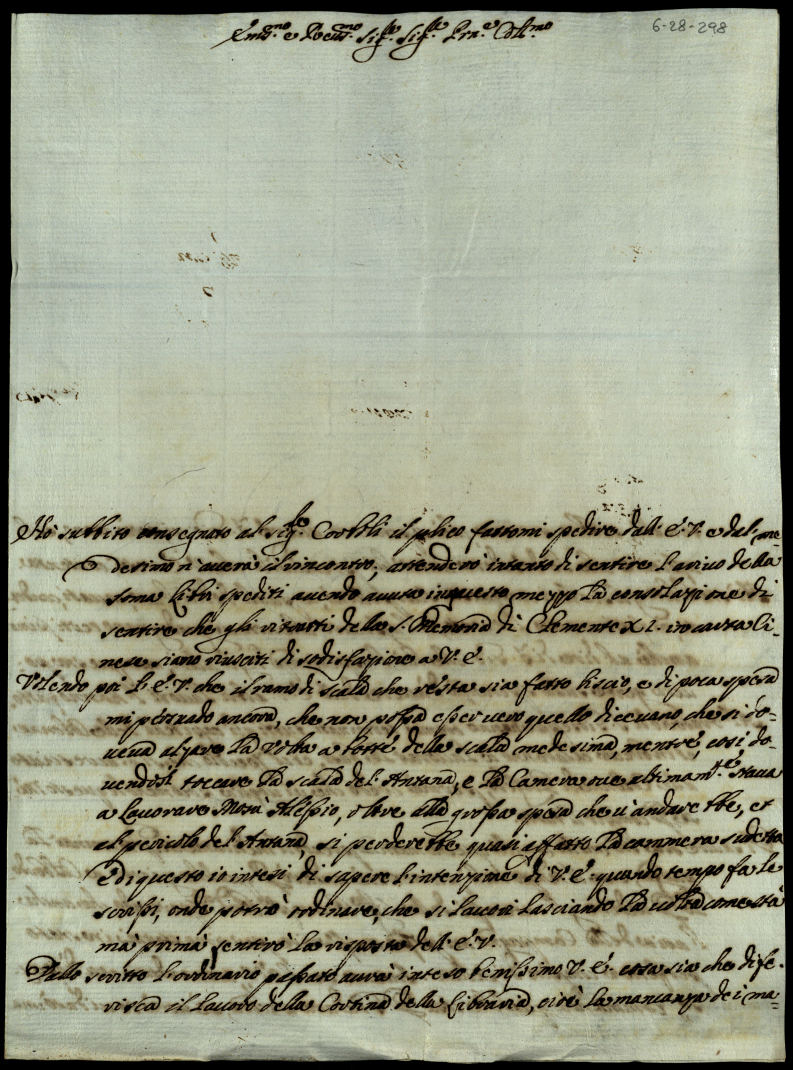 6-28-298
Em.mo e Rev.mo Sig.re Sig.re Pron.e Coll.mo
Hò subbito consegnato al sig.re il plico fattomi spedire dall' E. V. e dal me
desimo n' averà il rincontro; attenderò intanto di sentire l' arrivo della
soma libri spediti avendo avuto in questo mezzo la consolazione di
sentire che gli ritratti della S. Memoria di Clemente XI. in carta li-
nese siano riusciti di sodisfazione a V. E.
Volendo poi l' E. V. che il ramo di scala che resta sia fatto liscio, e di poca spesa
mi persuado ancora, che non possa esser vero quello dicevano, che si do-
veva alzare la volta a botte della scala medesima, mentre, così do-
vendosi toccare la scala del Antana, e la Camera ove ultimam.te stava
a lavorare Mons.r Alessio, oltre alla grossa spesa che vi andarebbe, et
al pericolo del Antana, si perderebbe quasi affatto la cammera sudetta
E di questo io intesi di sapere l' intenzione di V. E. quando tempo fa le
scrissi, onde potrò ordinare, che si lavori lasciando la volta come stà
mà prima sentirò la risposta dell' E. V.
Dallo scritto l' ordinario passato avrà inteso benissimo V. E. cosa sia che dife-
risca il lavoro della Cortina della Libraria, cioè la mancanza dei ma-